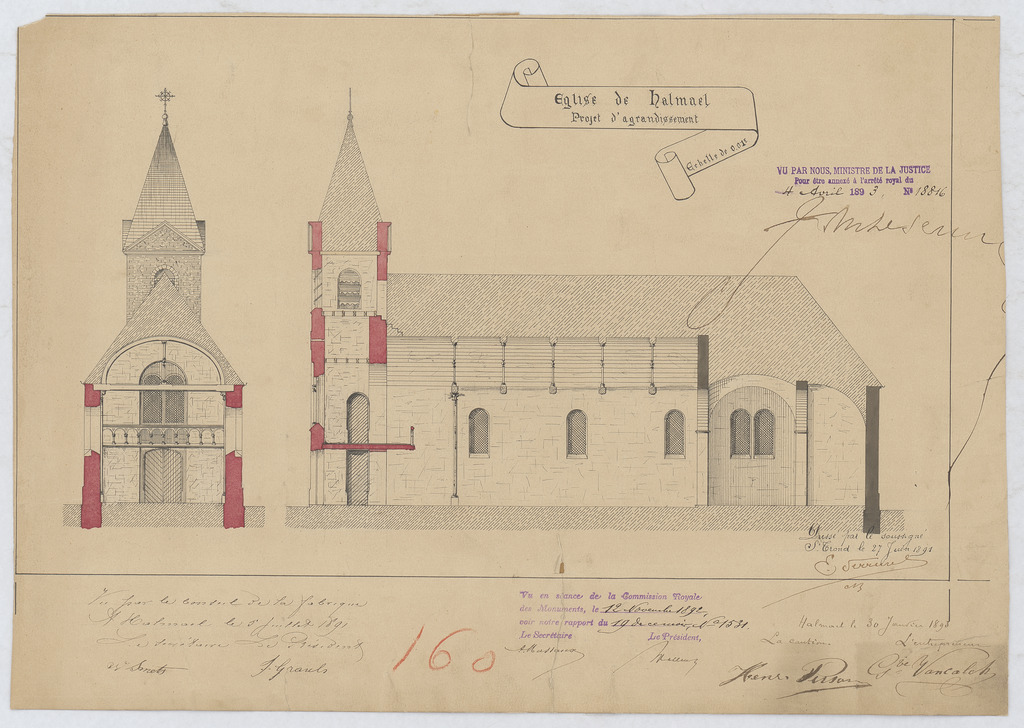 Eglise de Halmael
Projet d'agrandissement
Echelle de 0.02
VU PAR NOUS, MINISTRE DE LA JUSTICE
Pour être annexé à l'arrêté royal du
4 Avril 1893, No 18816
Dressé par le soussigné
St Trond le 27 Juin 1891
E. Serrure
Vu par le conseil de la fabrique
à Halmael le 5 Juillet 1891
Le secrétaire Le Président
J. Grauls
160
Vu en séance de la Commission Royale
des Monuments, le 12 Novembre 1892,
voir notre rapport du 19 de ce mois, No 1531.
Le Secrétaire Le Président,
Halmael le 30 Janvier 1893
La caution L'entrepreneur
Henri Vancalck